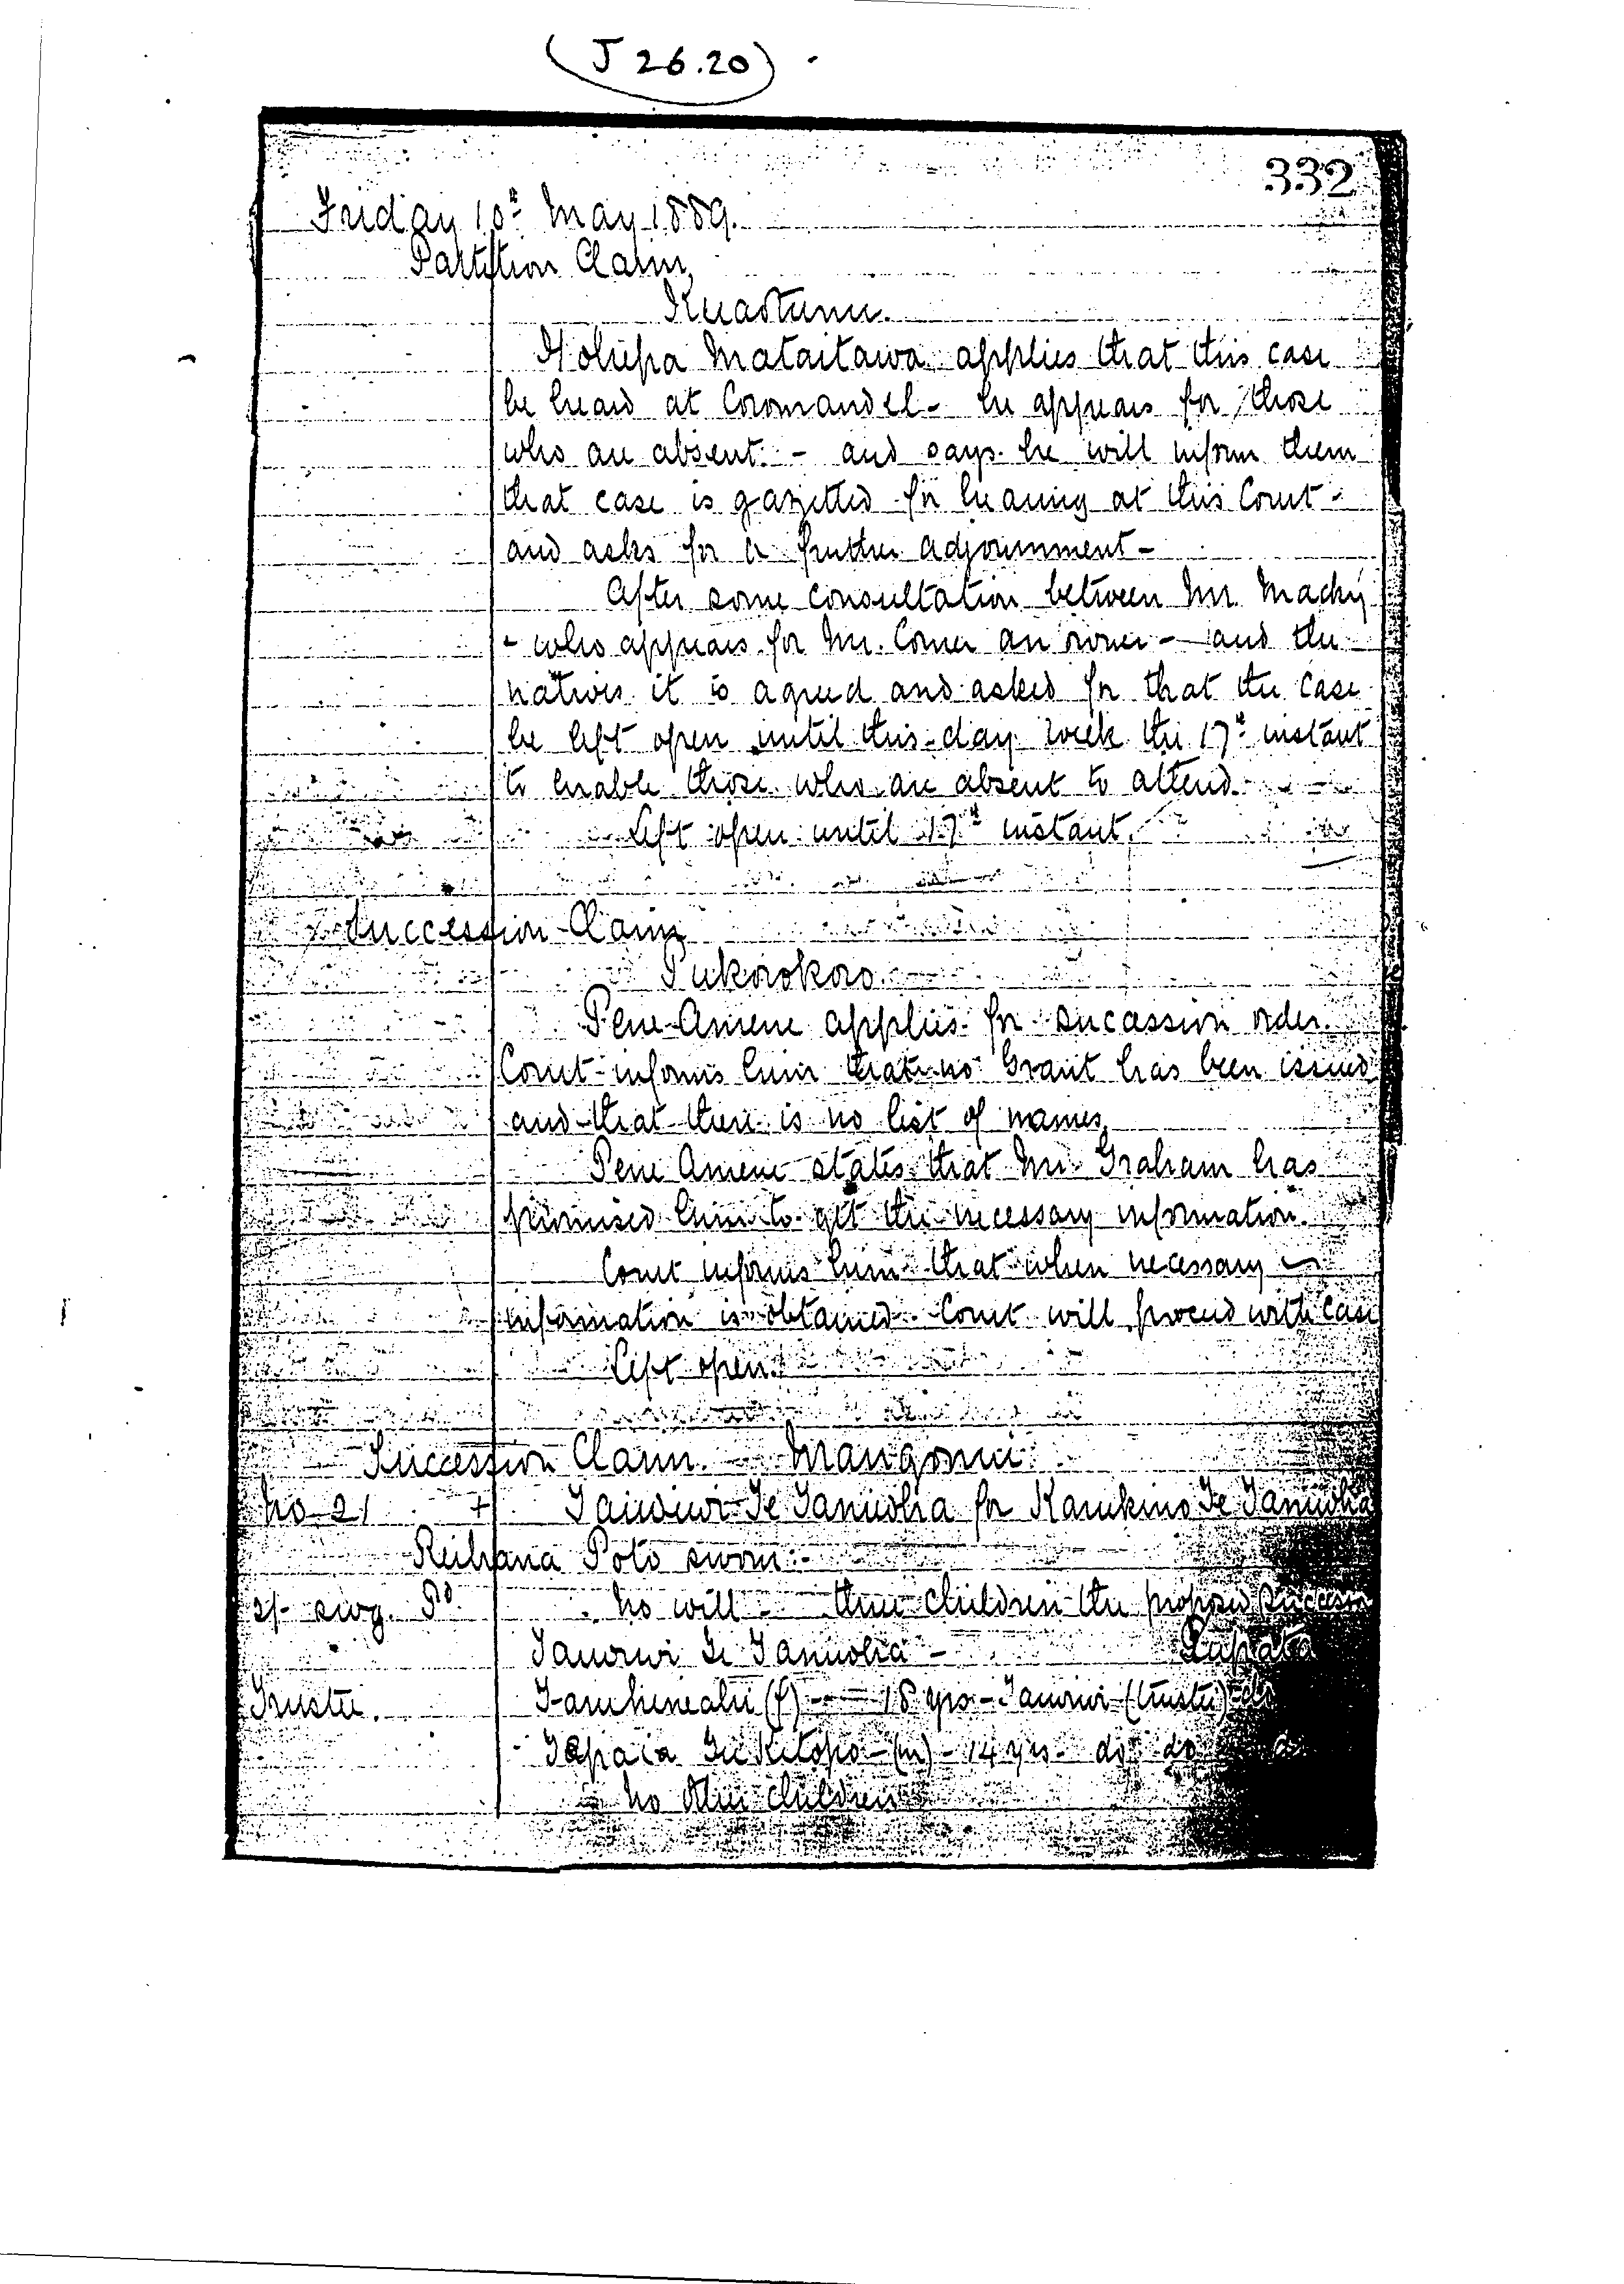 (J 26.20)
332
Friday 10th May 1889.
Partition Claim,
Kuaotunu.
Hohepa Mataitawa applies that this case
be heard at Coromandel - he appears for those
who are absent - and says he will inform them
that case is gazetted for hearing at this Court -
and asks for a further adjournment -
After some consultation between Mr. Macky
- who appears for Mr. Comer an owner - and the
natives it is agreed and asked for that the case
be left open until this day week the 17th instant
to enable those who are absent to attend.
Left open until 17th instant.
Succession Claim
Pukorokoro.
Pene Amene applies for succession order.
Court informs him that no Grant has been issued
and that there is no list of names.
Pene Amene states that Mr Graham has
promised him to get the necessary information.
Court informs him that when necessary
information is obtained Court will proceed with case
Left open.
Succession Claim. Mangonui.
No 21 + Te Taniwha for Te Taniwha
Reihana Poto sworn:
No will three children the proposed
Te Taniwha -
Trustee. (f) - 18 yrs - (trustee)
(m) - 14 yrs do do
No other children